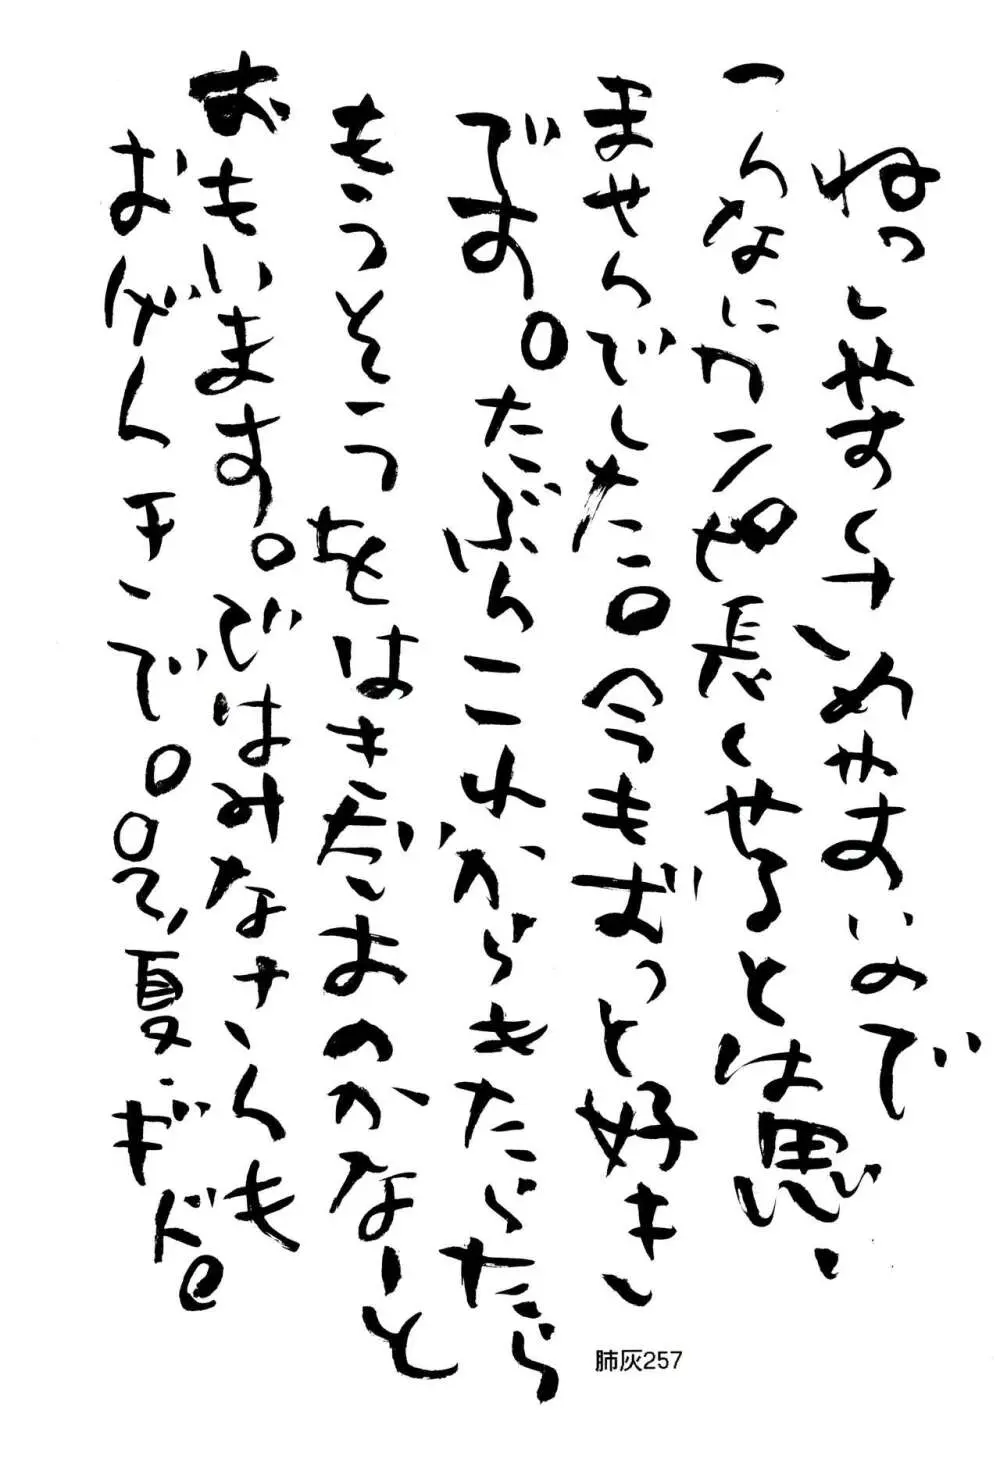 ねっしやすくさめやすいので
こんなにワンピ長くやるとは思い
ませんでした。今もずっと好き
です。たぶんこれからもたらたら
もうそうをはきだすのかなーと
おもいます。ではみなさんも
おげんきで。02,夏.ギド
肺灰257